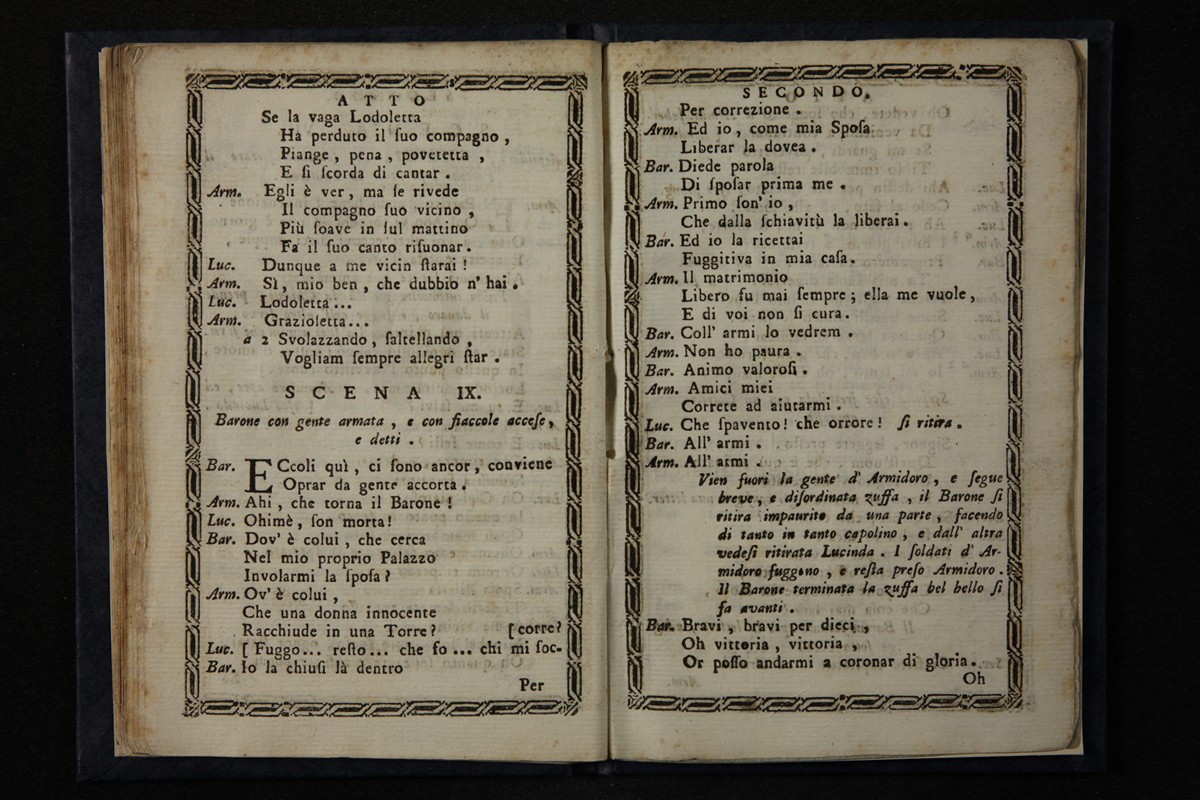 ATTO
Se la vaga Lodoletta
Ha perduto il ſuo compagno ,
Piange , pena , povetetta ,
E ſi ſcorda di cantar .
Arm. Egli è ver, ma ſe rivede
Il compagno ſuo vicino ,
Più ſoave in ſul mattino
Fa il ſuo canto riſuonar .
Luc. Dunque a me vicin ſtarai !
Arm. Sì , mio ben , che dubbio n' hai .
Luc. Lodoletta ...
Arm. Grazioletta ...
a 2 Svolazzando , ſaltellando ,
Vogliam ſempre allegri ſtar .
SCENA IX.
Barone con gente armata , e con fiaccole acceſe ,
e detti .
Bar. ECcoli quì , ci ſono ancor , conviene
Oprar da gente accorta .
Arm. Ahi , che torna il Barone !
Luc. Ohimè , ſon morta !
Bar. Dov' è colui , che cerca
Nel mio proprio Palazzo
Involarmi la ſpoſa ?
Arm. Ov' è colui ,
Che una donna innocente
Racchiude in una Torre ? [corre?
Luc. [ Fuggo ... reſto ... che fo ... chi mi ſoc-
Bar. Io la chiuſi là dentro
Per
SECONDO.
Per correzione .
Arm. Ed io , come mia Spoſa
Liberar la dovea .
Bar. Diede parola
Di ſpoſar prima me .
Arm. Primo ſon' io ,
Che dalla ſchiavitù la liberai .
Bar. Ed io la ricettai
Fuggitiva in mia caſa .
Arm. Il matrimonio
Libero fu mai ſempre ; ella me vuole ,
E di voi non ſi cura .
Bar. Coll' armi lo vedrem .
Arm. Non ho paura .
Bar. Animo valoroſi .
Arm. Amici miei
Correte ad aiutarmi .
Luc. Che ſpavento ! che orrore ! ſi ritira .
Bar. All' armi .
Arm. All' armi .
Vien fuori la gente d' Armidoro , e ſegue
breve , e diſordinata zuffa , il Barone ſi
ritira impaurito da una parte , facendo
di tanto in tanto capolino , e dall' altra
vedeſi ritirata Lucinda . I ſoldati d' Ar-
midoro fuggono , e reſta preſo Armidoro .
Il Barone terminata la zuffa bel bello ſi
fa avanti .
Bar. Bravi , bravi per dieci ,
Oh vittoria , vittoria ,
Or poſſo andarmi a coronar di gloria .
Oh